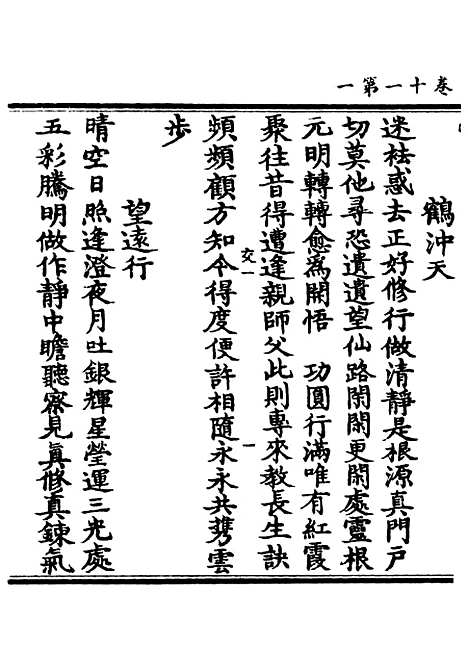 卷十一第一
鶴沖天
迷袪惑去正好修行做清靜是根源真門戶
切莫他尋恐遺遺望仙路閑閑更閑處靈根
元明轉轉愈為開悟　功圓行滿唯有紅霞
聚往昔得遭逢親師父此則專來教長生訣
頻頻顧方知今得度便許相隨永永共携雲
步
望遠行
晴空日照逢澄夜月吐銀輝星瑩運三光處
五彩騰明做作靜中瞻聽察見真修真鍊氣
交一
一